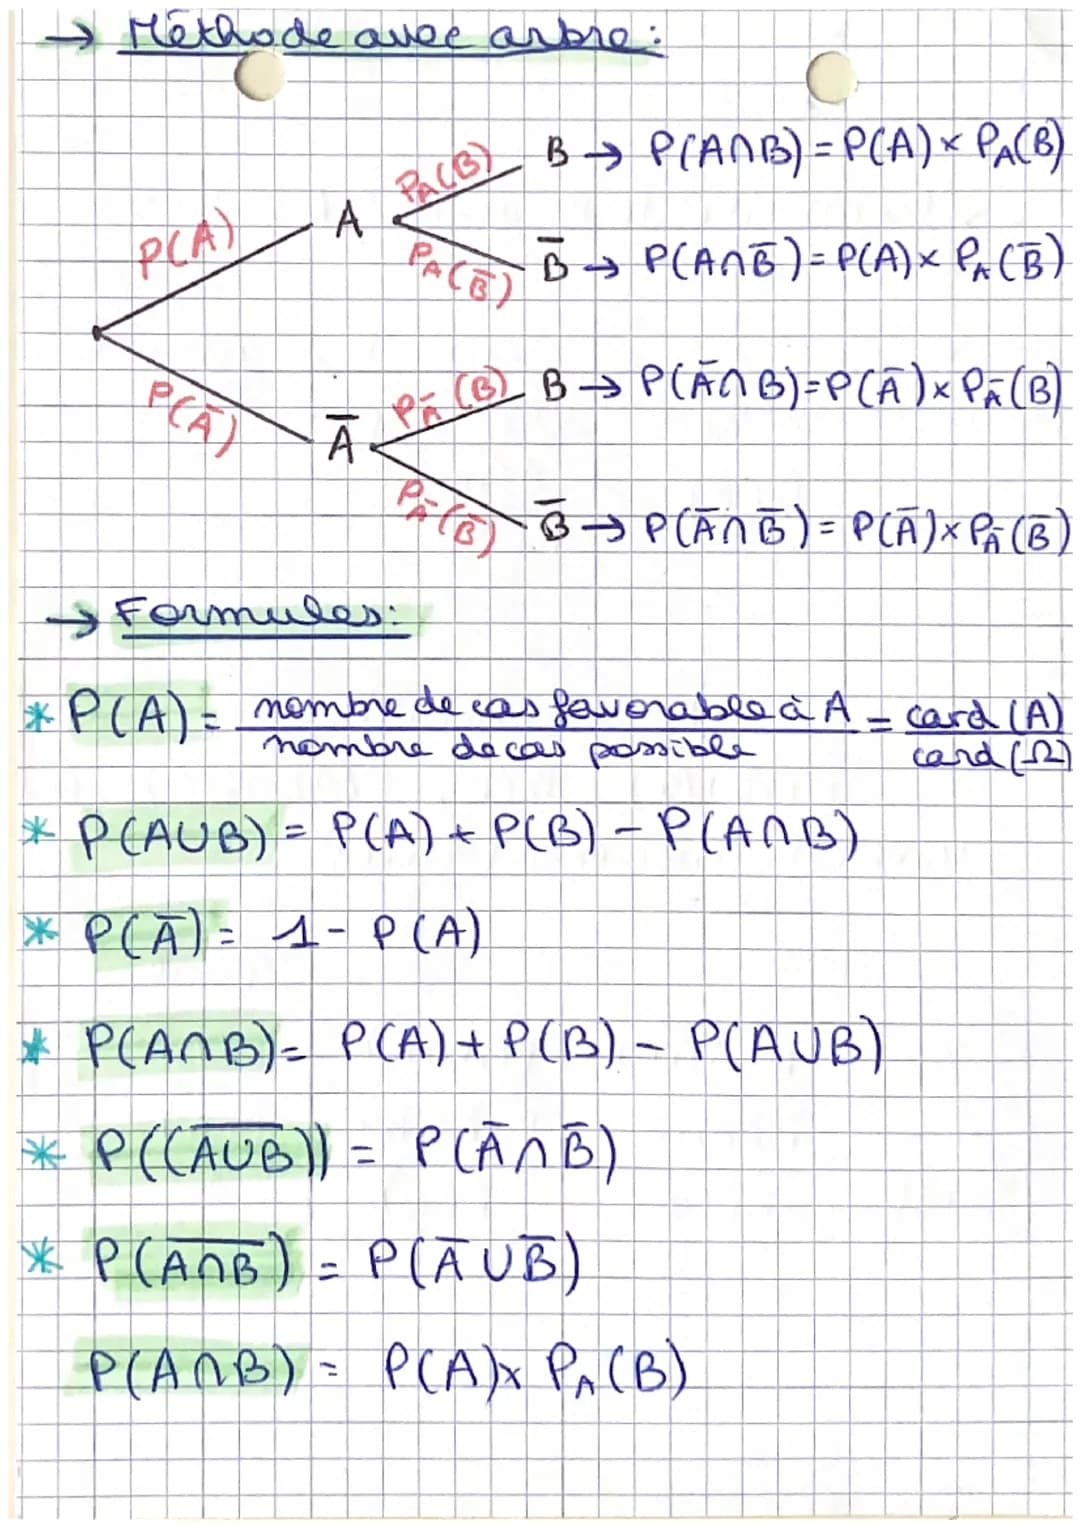 → Méthode avec arbre:
P_A(B) B → P(A∩B) = P(A) × P_A(B)
P(A) A
P_A(B̅) B̅ → P(A∩B̅) = P(A) × P_A(B̅)
P(A̅) P_A̅(B) B → P(A̅∩B) = P(A̅) × P_A̅(B)
A̅
P_A̅(B̅) B̅ → P(A̅∩B̅) = P(A̅) × P_A̅(B̅)
→ Formules:
* P(A) = nombre de cas favorable à A = card (A)
nombre de cas possible card (Ω)
* P(A∪B) = P(A) + P(B) - P(A∩B)
* P(A̅) = 1 - P(A)
* P(A∩B) = P(A) + P(B) - P(A∪B)
* P((A̅∪̅B̅)) = P(A̅∩B̅)
* P(A̅∩̅B̅) = P(A̅∪B̅)
P(A∩B) = P(A) × P_A(B)